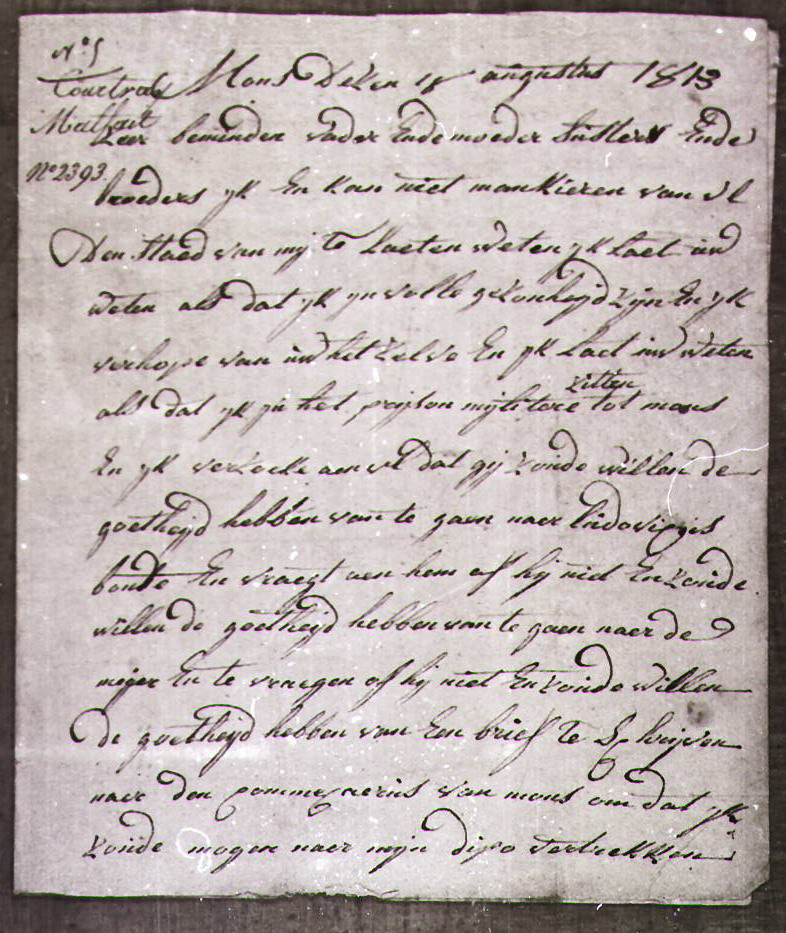 N° 5
Courtray
N° 2393.
Mons Desen 18 augustus 1813
Zeer beminden vader Ende moeder susters Ende
broeders yk En kan niet mankieren van Ul
Den staed van mij Te Laeten weten yk Laet uw
weten als dat yk yn volle gezonheyd zijn En yk
verhope van uw het zelve En yk Laet uw weten
als dat yk yn het prison mylitere zitten tot mons
En yk verzoeke aen Ul dat gij zoude willen de
goetheyd hebben van te gaen naer Ludovicus
bonte En vraegt aen hem of hij niet En zoude
willen de goetheyd hebben van te gaen naer de
mejer En te vraegen of hij niet En zoude willen
de goetheyd hebben van Een brief Te Schrijven
naer den commesaeris van mons om dat yk
zoude mogen naer mijn dipo vertrekken